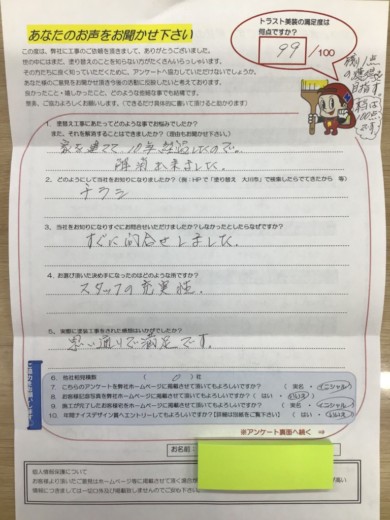 あなたのお声をお聞かせ下さい
トラスト美装の満足度は
何点ですか?
99 /100
この度は、弊社に工事のご依頼を頂きまして、ありがとうございました。
世の中にはまだ、塗り替えのことを知らない方がたくさんいらっしゃいます。
その方たちに良く知っていただくために、アンケートへ協力していただけないでしょうか。
良かったこと・嬉しかったこと、どのような些細な事でも結構です。
是非、ご協力よろしくお願いします。(できるだけ具体的に書いて頂けると助かります)
残り1点
目指す。
1. 塗替え工事にあたってどのような事でお悩みでしたか?
また、それを解消することはできましたか?(理由もお聞かせ下さい。)
家を建てて、10年経過したので。
解消出来ました。
2. どのようにして当社をお知りになりましたか?(例:HPで「塗り替え 大川市」で検索したらでてきたから 等)
チラシ
3. 当社をお知りなりすぐにお問合わせいただけましたか?しなかったとしたらなぜですか?
すぐに問合せしました。
4. お選び頂いた決め手になったのはどのような所ですか?
スタッフの充実性。
5. 実際に塗装工事をされた感想はいかがでしたか?
思い通りで満足です。
6. 他社相見積数 ( 0 )社
7. こちらのアンケートを弊社ホームページに掲載させて頂いてもよろしいですか? ( 実名 ・ イニシャル )
8. お客様記念写真を弊社ホームページに掲載させて頂いてもよろしいですか? ( はい ・ いいえ )
9. 施工が完了したお客様宅をホームページに掲載させて頂いてもよろしいですか? ( 実名 ・ イニシャル )
10. 年間ナイスデザイン賞へエントリーしてもよろしいですか?【詳細は別紙をご覧下さい】 ( はい ・ いいえ )
※アンケート裏面へ続く ⇒
お名前:
個人情報保護について